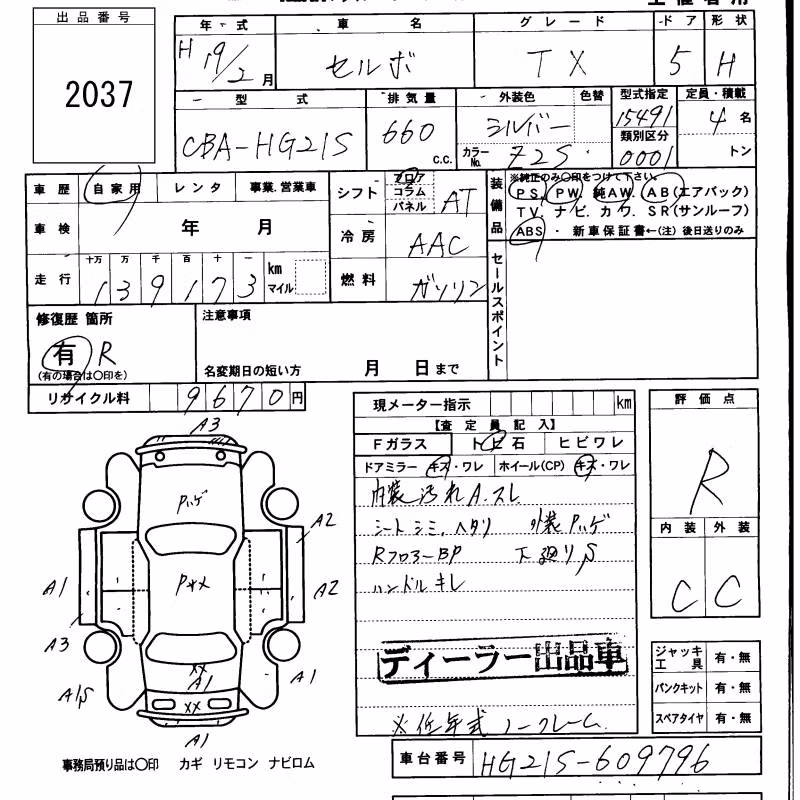 出品番号
2037
年・式 車名 グレード ドア 形状
H19/2月 セルボ TX 5 H
型式 排気量 外装色 色替 型式指定 定員・積載
CBA-HG21S 660 c.c. シルバー 15491 4名
カラーNo. Z2S 類別区分 0001 トン
車歴 自家用 レンタ 事業.営業車
シフト フロア コラム パネル AT
装備品 ※純正のみ○印をつけて下さい。
PS. PW. 純AW. AB(エアバック)
TV. ナビ. カワ. SR(サンルーフ)
ABS・新車保証書←(注)後日送りのみ
車検 年 月
冷房 AAC
走行 十万 万 千 百 十 一 km マイル
139173
燃料 ガソリン
セールスポイント
修復歴 箇所
有 R
(有の場合は○印を)
注意事項
名変期日の短い方 月 日まで
リサイクル料 9670円
現メーター指示 km
【査定員記入】
Fガラス トビ石 ヒビワレ
ドアミラー キズ・ワレ ホイール(CP) キズ・ワレ
内装汚れ A.スレ
シートシミ、ヘタリ 外装Pハゲ
Rフロアー BP 下廻りS
ハンドルキレ
ディーラー出品車
※低年式 ノークレーム
車台番号 HG21S-609796
評価点
R
内装 外装
C C
ジャッキ工具 有・無
パンクキット 有・無
スペアタイヤ 有・無
A3
Pハゲ
A2
A1
P××
A2
A3
A1S
××
A1
A1
××
A1
事務局預り品は○印 カギ リモコン ナビロム